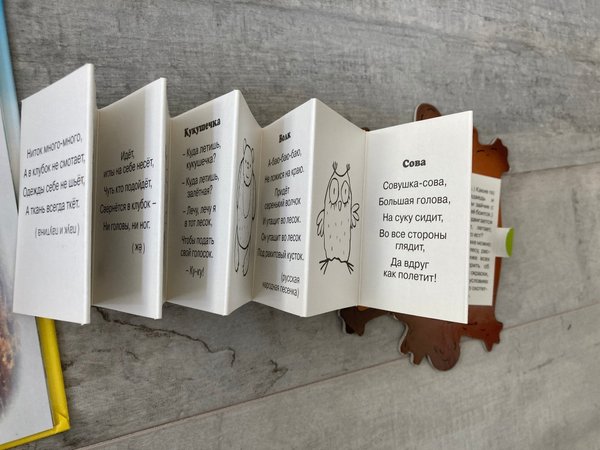 Ниток много-много,
А в клубок не смотает,
Одежды себе не шьёт,
А ткань всегда ткёт.
(паук и паутина)
Идёт,
иглы на себе несёт,
Чуть кто подойдёт,
Свернётся в клубок –
Ни головы, ни ног.
(ёж)
Кукушечка
– Куда летишь,
кукушечка?
– Куда летишь,
залётная?
– Лечу, лечу я
в тот лесок,
Чтобы подать
свой голосок.
– Ку-ку!
Волк
А-баю-баю-баю,
Не ложися на краю.
Придёт
серенький волчок
И утащит во лесок.
Он утащит во лесок
Под ракитовый кусток.
(русская
народная песенка)
Сова
Совушка-сова,
Большая голова,
На суку сидит,
Во все стороны
глядит,
Да вдруг
как полетит!